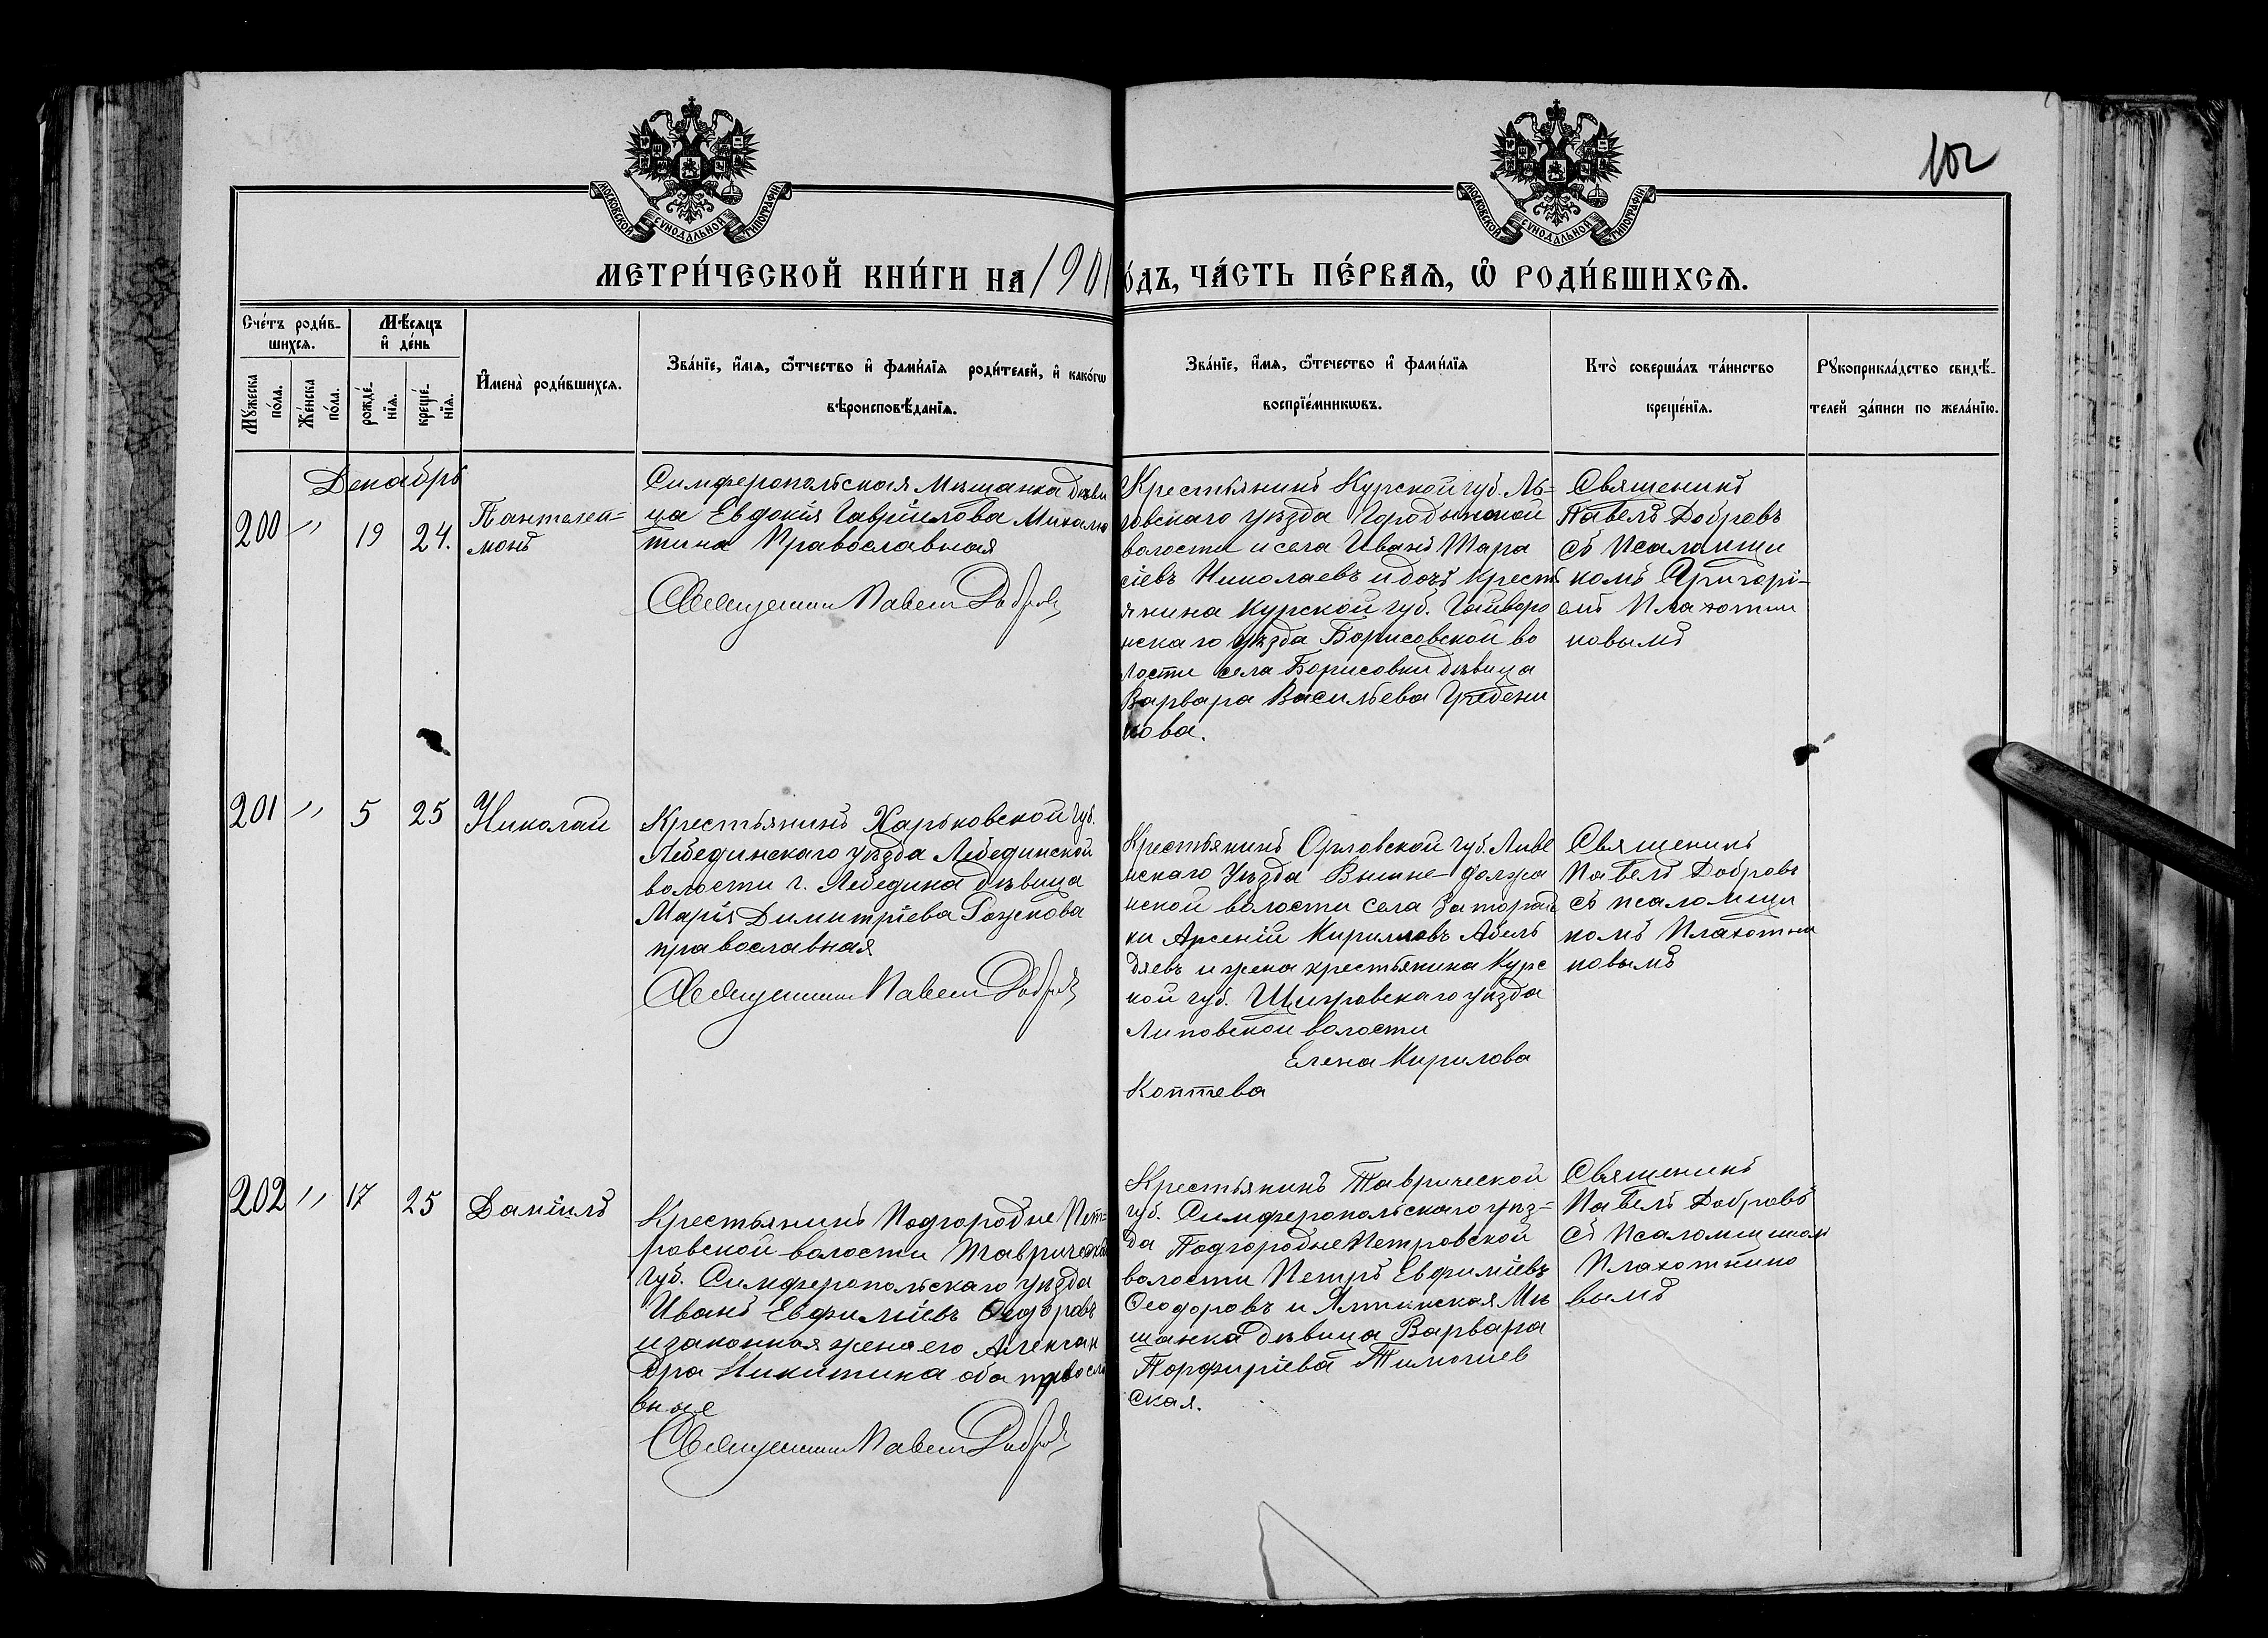 102
МОСКОВСКОЙ СѴНОДАЛЬНОЙ ТИПОГРАФІИ
МОСКОВСКОЙ СѴНОДАЛЬНОЙ ТИПОГРАФІИ
МЕТРИ́ЧЕСКОЙ КНИ́ГИ НА 1901
О́ДЪ, ЧА́СТЬ ПЕ́РВАѦ, Ѡ҆ РОДИ́ВШИХСѦ.
Сче́тъ роди́в-
шихсѧ.
Мѣ́сяцъ
и҆ де́нь
Мꙋжеска
по́ла.
Же́нска
по́ла.
рожде́-
нїѧ.
креще́-
нїѧ.
И҆мена̀ роди́вшихсѧ.
Зва́нїе, и҆́мѧ, ѻ҆́тчество и҆ фами́лїѧ роди́телей, и҆ како́гѡ
вѣроисповѣ́данїѧ.
Зва́нїе, и҆́мѧ, ѻ҆́течество и҆ фами́лїѧ
воспрїе́мникѡвъ.
Кто̀ соверша́лъ та́инство
креще́нїѧ.
Рꙋкоприкла́дство свидѣ́-
телей за́писи по жела́нїю.
Декабрь
200 " 19 24.
Пантелей-
монъ
Симферопольская Мѣщанка дѣви
ца Евдокія Гавріилова Михалю
тина Православная
Священникъ Павелъ Добровъ
Крестьянинъ Курской губ. Ль-
говскаго уѣзда Городенской
волости и села Иванъ Тара
сіевъ Николаевъ и дочь крестъ
янина Курской губ. Грайворо
нскаго уѣзда Борисовской во
лости села Борисовки дѣвица
Варвара Васильева Гребени
кова.
Священикъ
Павелъ Добровъ
съ Псаломщи
комъ Григорі-
емъ Плахотни
новымъ
201 " 5 25 Николай
Крестьянинъ Харьковской губ.
Лебединскаго уѣзда Лебединской
волости г. Лебедина дѣвица
Марія Димитріева Рожкова
православная
Священникъ Павелъ Добровъ
Крестьянинъ Орловской губ. Ливе
нскаго Уѣзда Вышне-Должа
нской волости села
ки Арсеній Кириловъ
дяевъ и жена крестьянина Курс
кой губ. Щигровскаго уѣзда
Липовской волости
Елена Кирилова
Коптева
Священикъ
Павелъ Добровъ
съ псаломщи
комъ Плахотни
новымъ
202 " 17 25 Даніилъ
Крестьянинъ Подгородне Пет-
ровской волости Таврической
губ. Симферопольскаго уѣзда
Иванъ Евфиміевъ Ѳеодоровъ
и законная жена его Алексан
дра Никитина оба правосла
вные
Священникъ Павелъ Добровъ
Крестьянинъ Таврической
губ. Симферопольскаго уѣз-
да Подгородне Петровской
волости Петръ Евфиміевъ
Ѳеодоровъ и Ялтинская Мѣ
щанка дѣвица Варвара
Порфиріева
ская.
Священикъ
Павелъ Добровъ
съ Псаломщикомъ
Плахотнино
вымъ